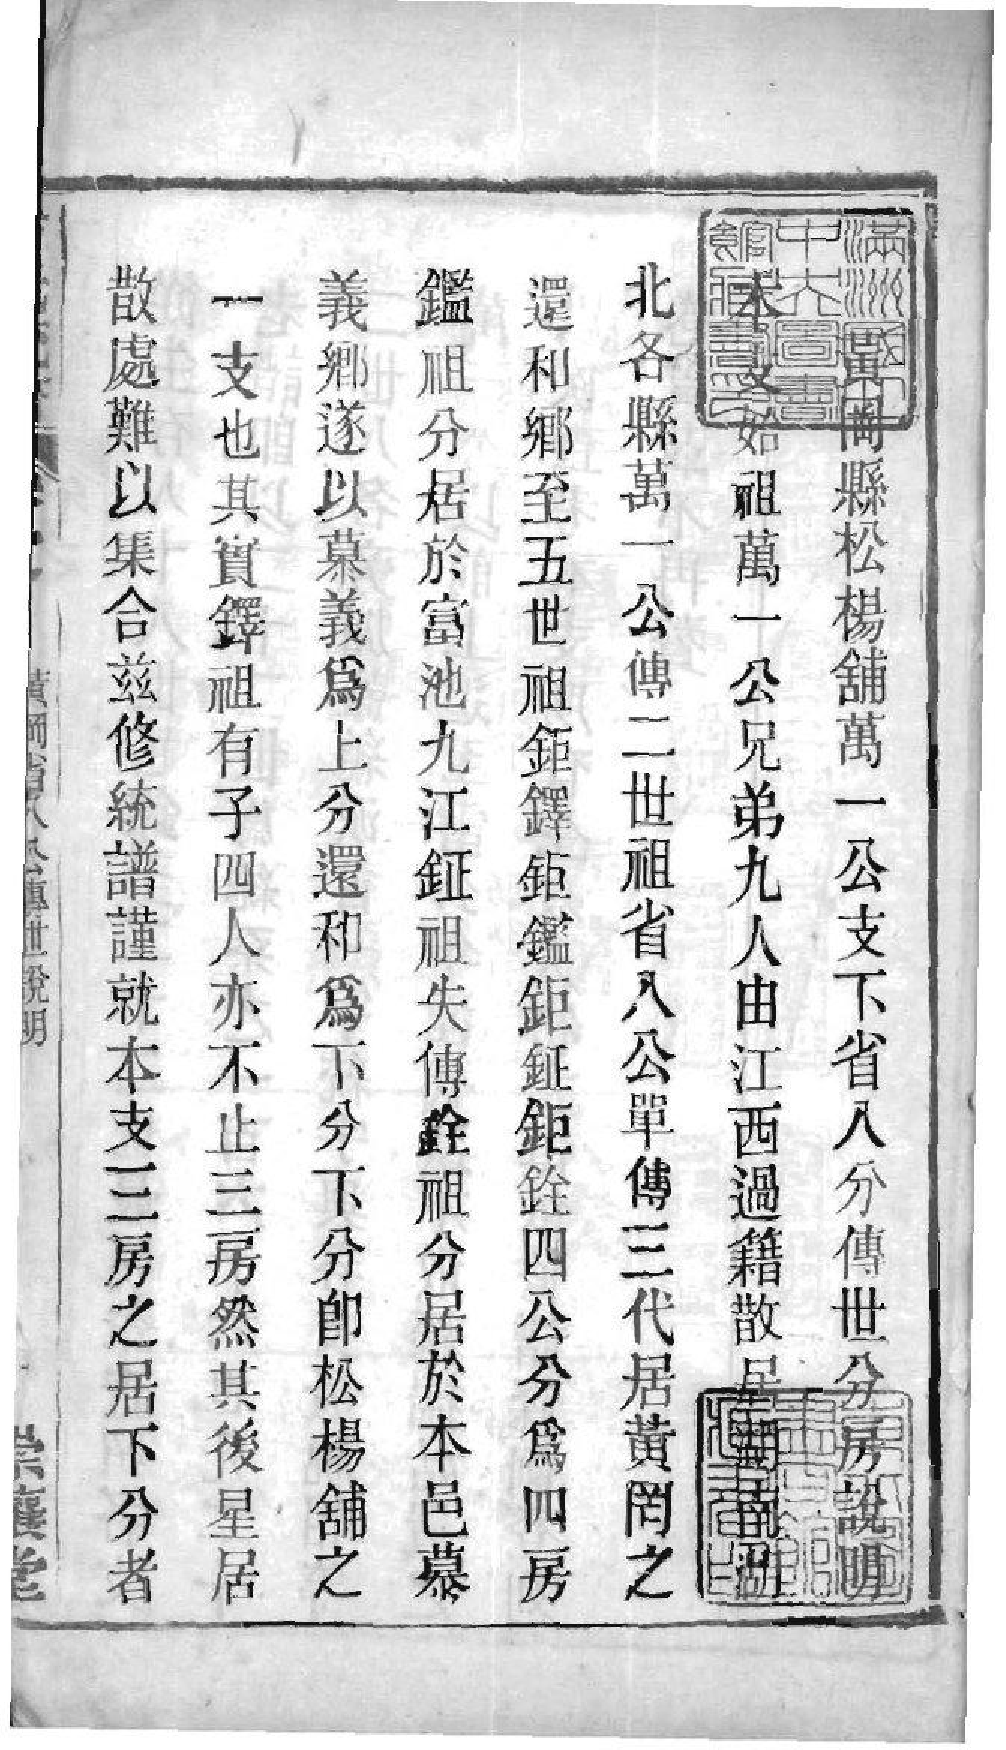 黃岡縣松楊舖萬一公支下省八分傳世分房說明
本支始祖萬一公兄弟九人由江西過籍散居湖南湖
北各縣萬一公傳二世祖省八公單傳三代居黃岡之
還和鄉至五世祖鉅鐸鉅鑑鉅鉦鉅銓四公分爲四房
鑑祖分居於富池九江鉦祖失傳銓祖分居於本邑慕
義鄉遂以慕義爲上分還和爲下分下分卽松楊舖之
一支也其實鐸祖有子四人亦不止三房然其後星居
散處難以集合茲修統譜謹就本支三房之居下分者
黃岡省八公傳世說明
崇讓堂